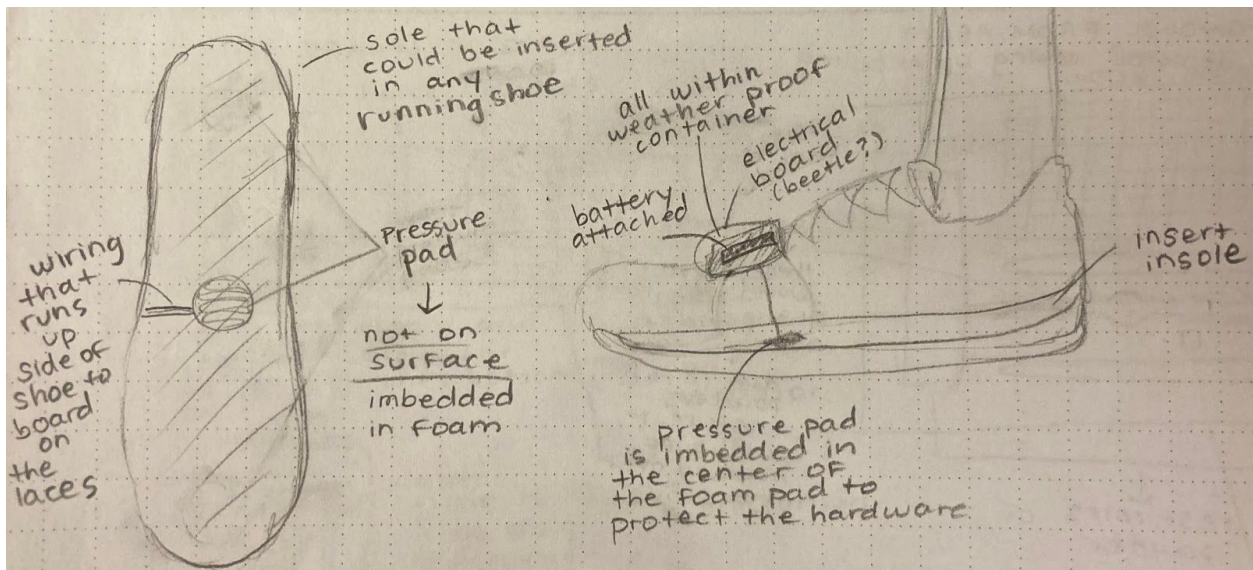 sole that
could be inserted
in any
running shoe
wiring
that
runs
up
side of
shoe to
board
on
the
laces
pressure
pad
not on
surface
imbedded
in foam
all within
weather proof
container
electrical
board
(beetle?)
battery
attached
insert
insole
pressure pad
is imbedded in
the center of
the foam pad to
protect the hardware